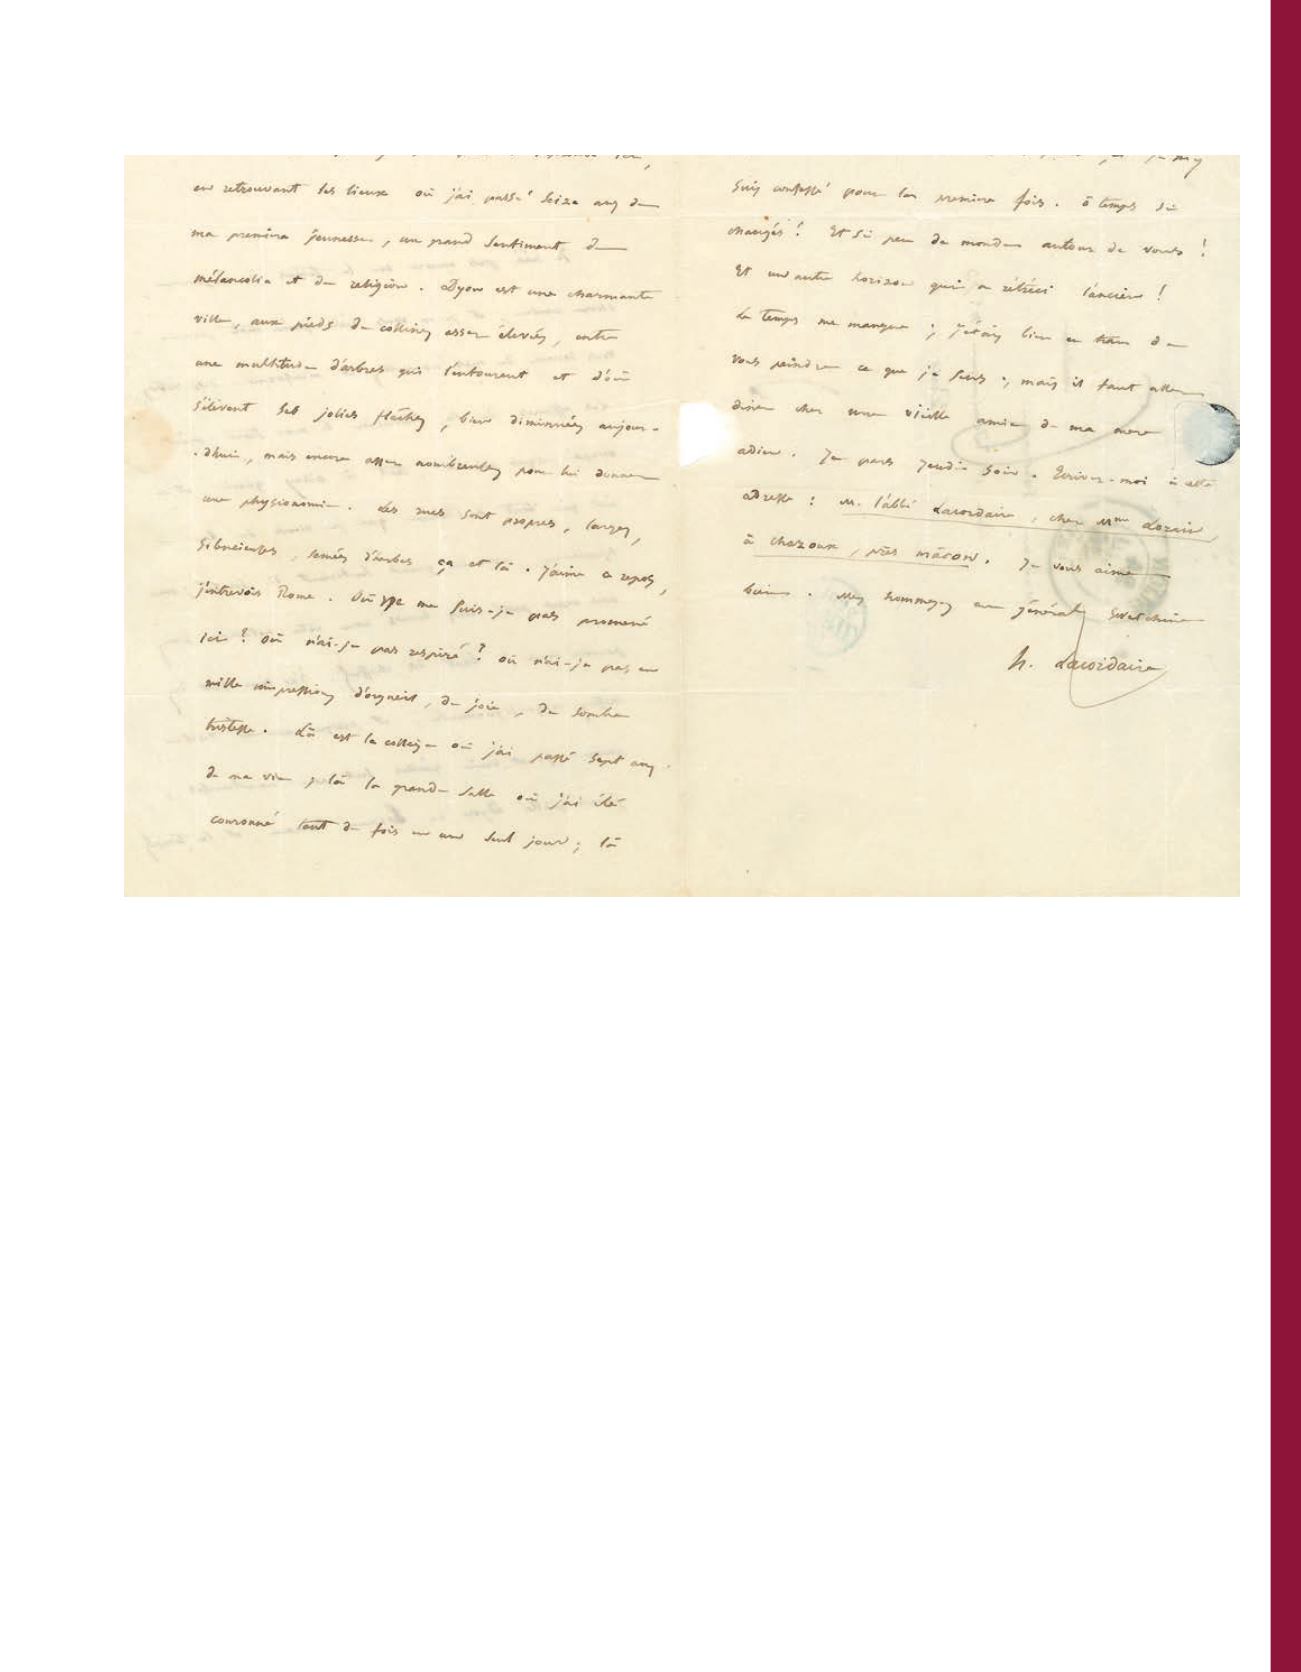 en retrouvant les lieux où j'ai passé seize ans de
ma première jeunesse, un grand sentiment de
mélancolie et de religion. Dijon est une charmante
ville, aux pieds de collines assez élevées, entre
une multitude d'arbres qui l'entourent et d'où
s'élèvent ses jolies flèches, bien diminuées aujour-
d'hui, mais encore assez nombreuses pour lui donner
une physionomie. Les rues sont propres, larges,
silencieuses, semées d'arbres ça et là. J'aime ce repos,
j'entrevois Rome. Où ne me suis-je pas promené
ici ? où n'ai-je pas respiré ? où n'ai-je pas eu
mille impressions d'orgueil, de joie, de sombre
tristesse. Là est le collège où j'ai passé sept ans
de ma vie ; là la grande salle où j'ai été
couronné tant de fois en un seul jour ; là
suis confessé pour la première fois. ô temps si
changés ! Et si peu de monde autour de vous !
Et un autre horizon qui a rétréci l'ancien !
Le temps me manque ; j'étais bien en train de
vous peindre ce que je sens ; mais il faut aller
dîner chez une vieille amie de ma mère
adieu. Je pars jeudi soir. Ecrivez-moi à cette
adresse : M. l'abbé Lacordaire, chez Mme Lorain,
à chazoux, près mâcon. Je vous aime
bien. Mes hommages au général Swetchine
h. Lacordaire